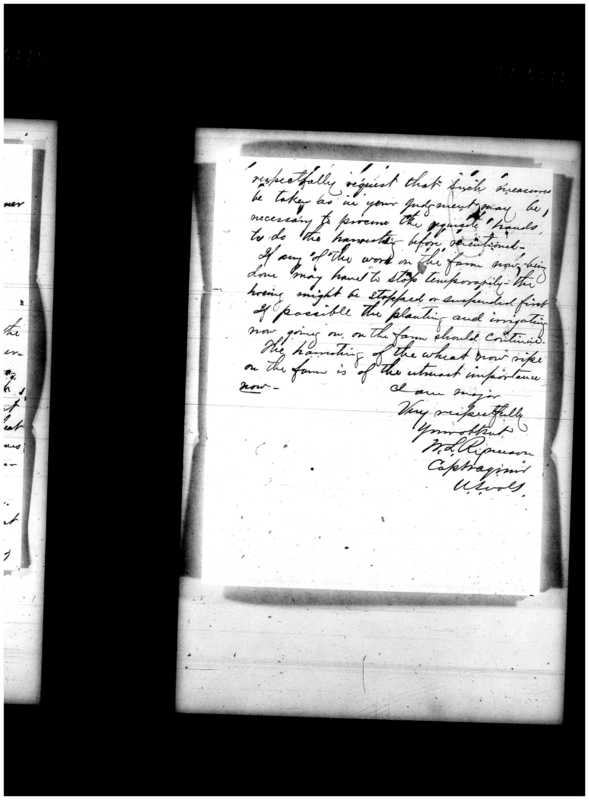 respectfully request that such measures
be taken as in your judgment may be,
necessary to procure the requisite hands
to do the harvesting before mentioned.
If any of the work on the farm now being
done may have to stop temporarily - the
hoeing might be stopped or suspended first
If possible the planting and irrigating
now going on, on the farm should continue.
The harvesting of the wheat now ripe
on the farm is of the utmost importance
now -
I am major
Very respectfully
Your obt
W. L.
Capt
U.S. vols.
the